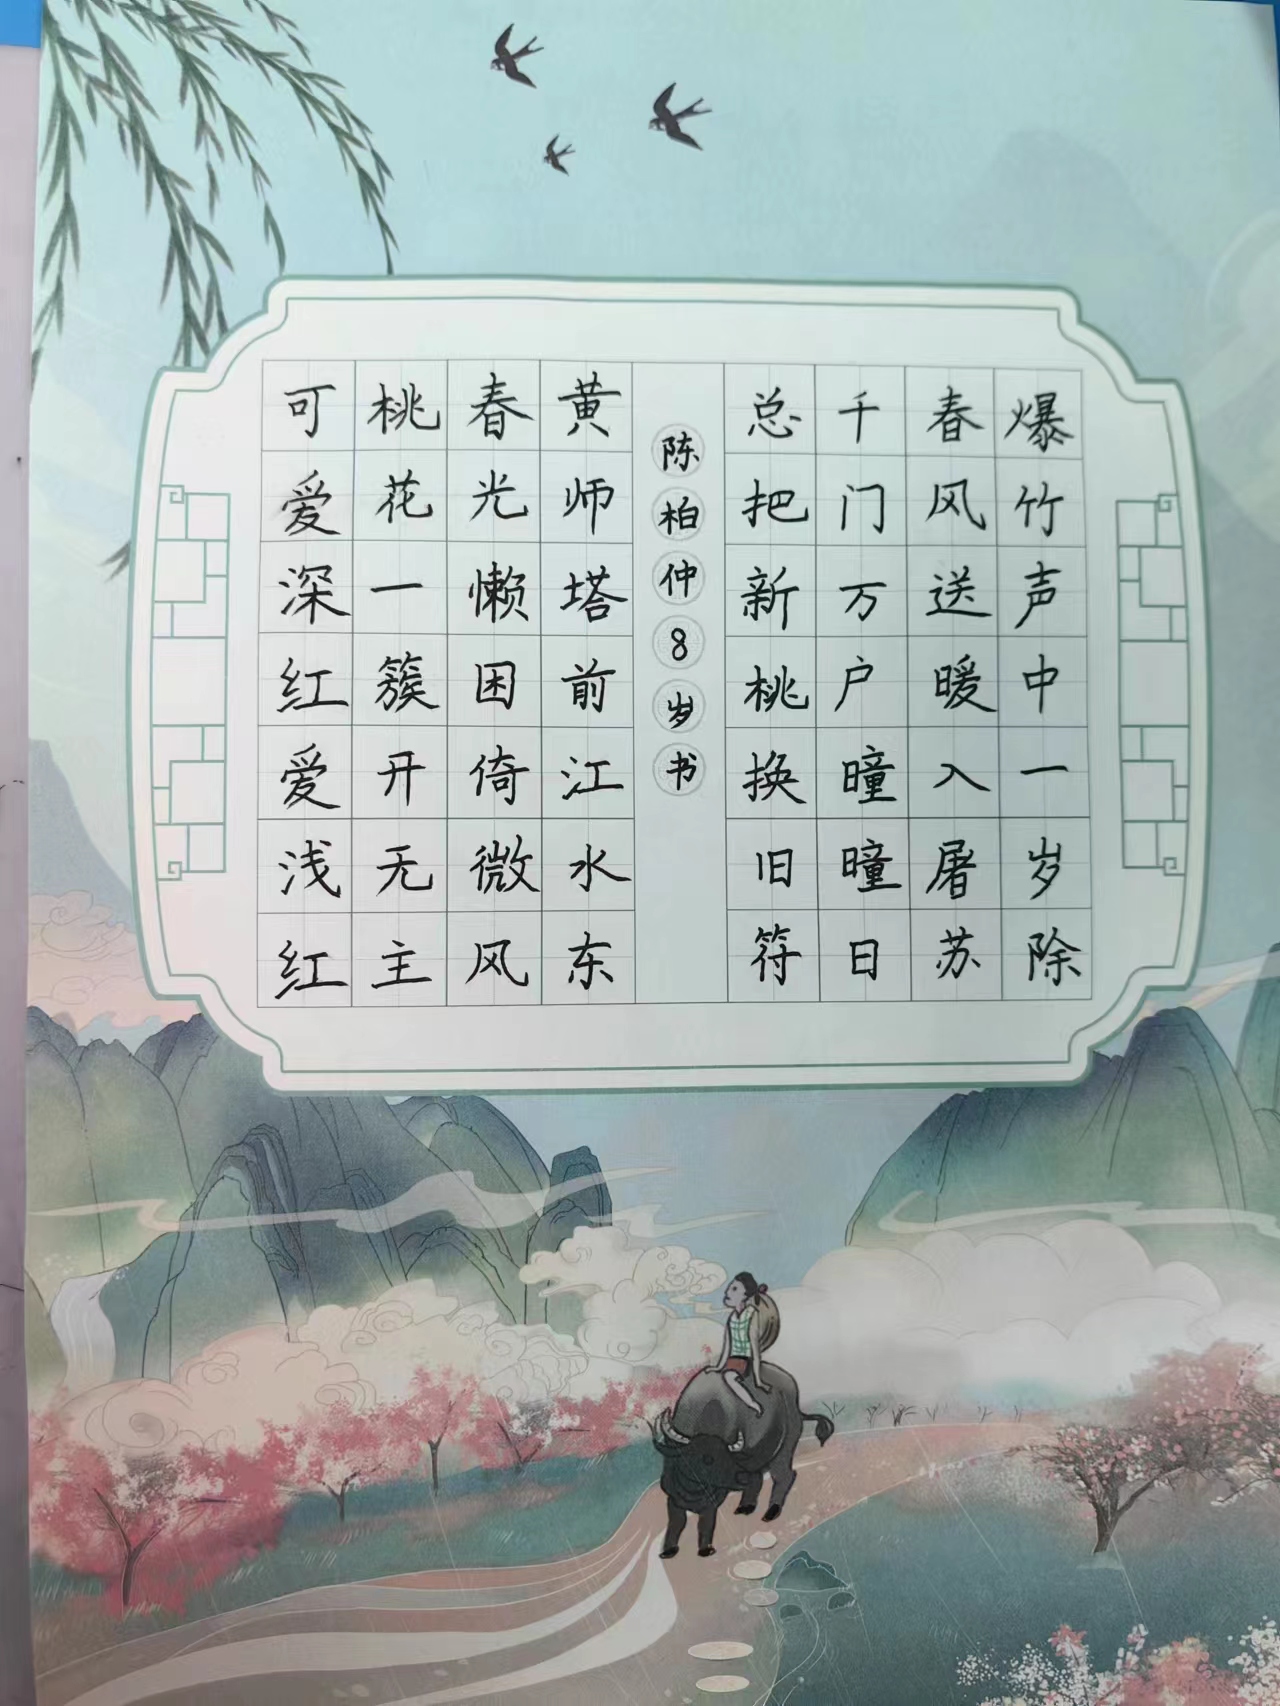 爆竹声中一岁除
春风送暖入屠苏
千门万户曈曈日
总把新桃换旧符
陈柏仲8岁书
黄师塔前江水东
春光懒困倚微风
桃花一簇开无主
可爱深红爱浅红